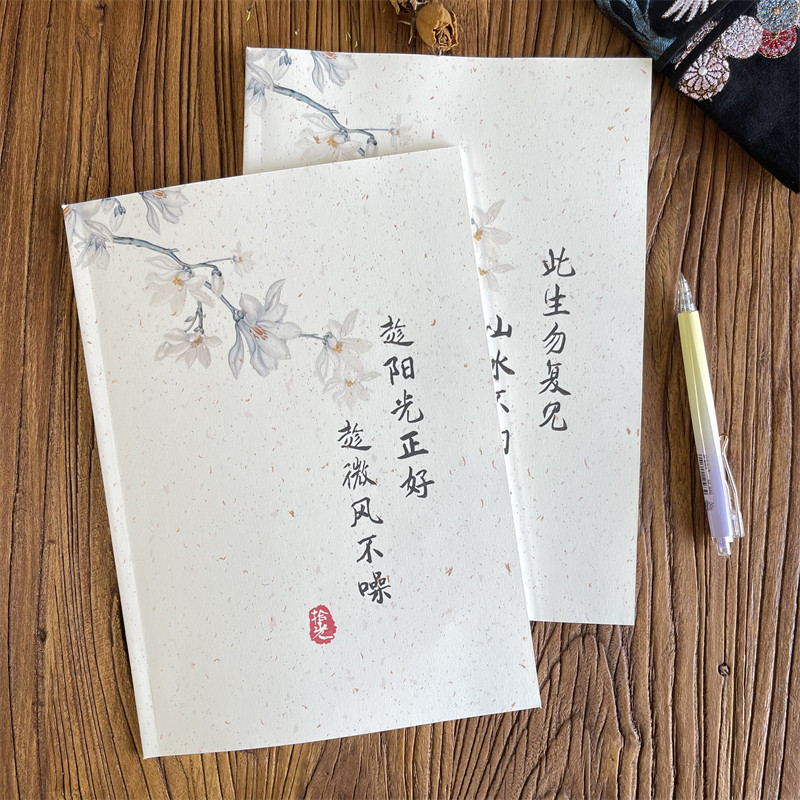 趁阳光正好
趁微风不噪
拾光
此生勿复见
山水不